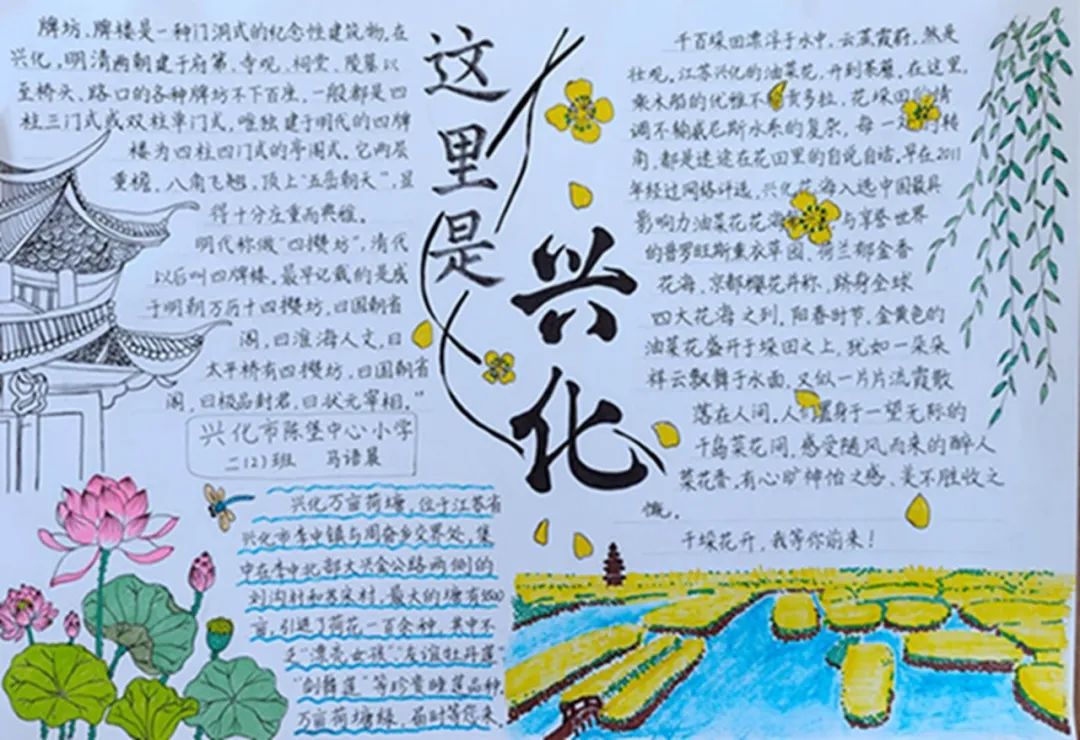 牌坊、牌楼是一种门洞式的纪念性建筑物,在
兴化,明清两朝建于府第、寺观、祠堂、陵墓以
至桥头、路口的各种牌坊不下百座,一般都是四
柱三门式或双柱单门式,唯独建于明代的四牌
楼为四柱四门式的亭阁式,它两层
重檐,八角飞翘,顶上“五岳朝天”,显
得十分庄重而典雅。
明代称做“四攒坊”,清代
以后叫四牌楼。最早记载的是成
于明朝万历十四攒坊,曰国朝省
阁,曰淮海人文,曰
太平桥有四攒坊,曰国朝省
阁,曰极品封君,曰状元宰相。”
兴化市陈堡中心小学
二(2)班 马语晨
兴化万亩荷塘,位于江苏省
兴化市李中镇与周奋乡交界处,集
中在李中北部大兴金公路两侧的
刘沟村和苏宋村,最大的塘有
亩,引进了荷花一百余种,其中不
乏“漂亮女孩”、“友谊牡丹莲”
“剑舞莲”等珍贵睡莲品种,
万亩荷塘绿,届时等您来。
这里是
兴化
千百垛田漂浮于水中,云蒸霞蔚,煞是
壮观。江苏兴化的油菜花,开到荼蘼。在这里,
乘木船的优雅不 贡多拉,花垛田的情
调不输威尼斯水系的复杂,每一 转
角,都是迷途在花田里的自说自话。早在2011
年经过网络评选,兴化花海入选中国最具
影响力油菜花花海 与享誉世界
的普罗旺斯薰衣草园、荷兰郁金香
花海、京都樱花并称,跻身全球
四大花海之列。阳春时节,金黄色的
油菜花盛开于垛田之上,犹如一朵朵
祥云飘舞于水面,又似一片片流霞散
落在人间,人们置身于一望无际的
千岛菜花间,感受随风而来的醉人
菜花香,有心旷神怡之感、美不胜收之
慨。
千垛花开,我等你前来!